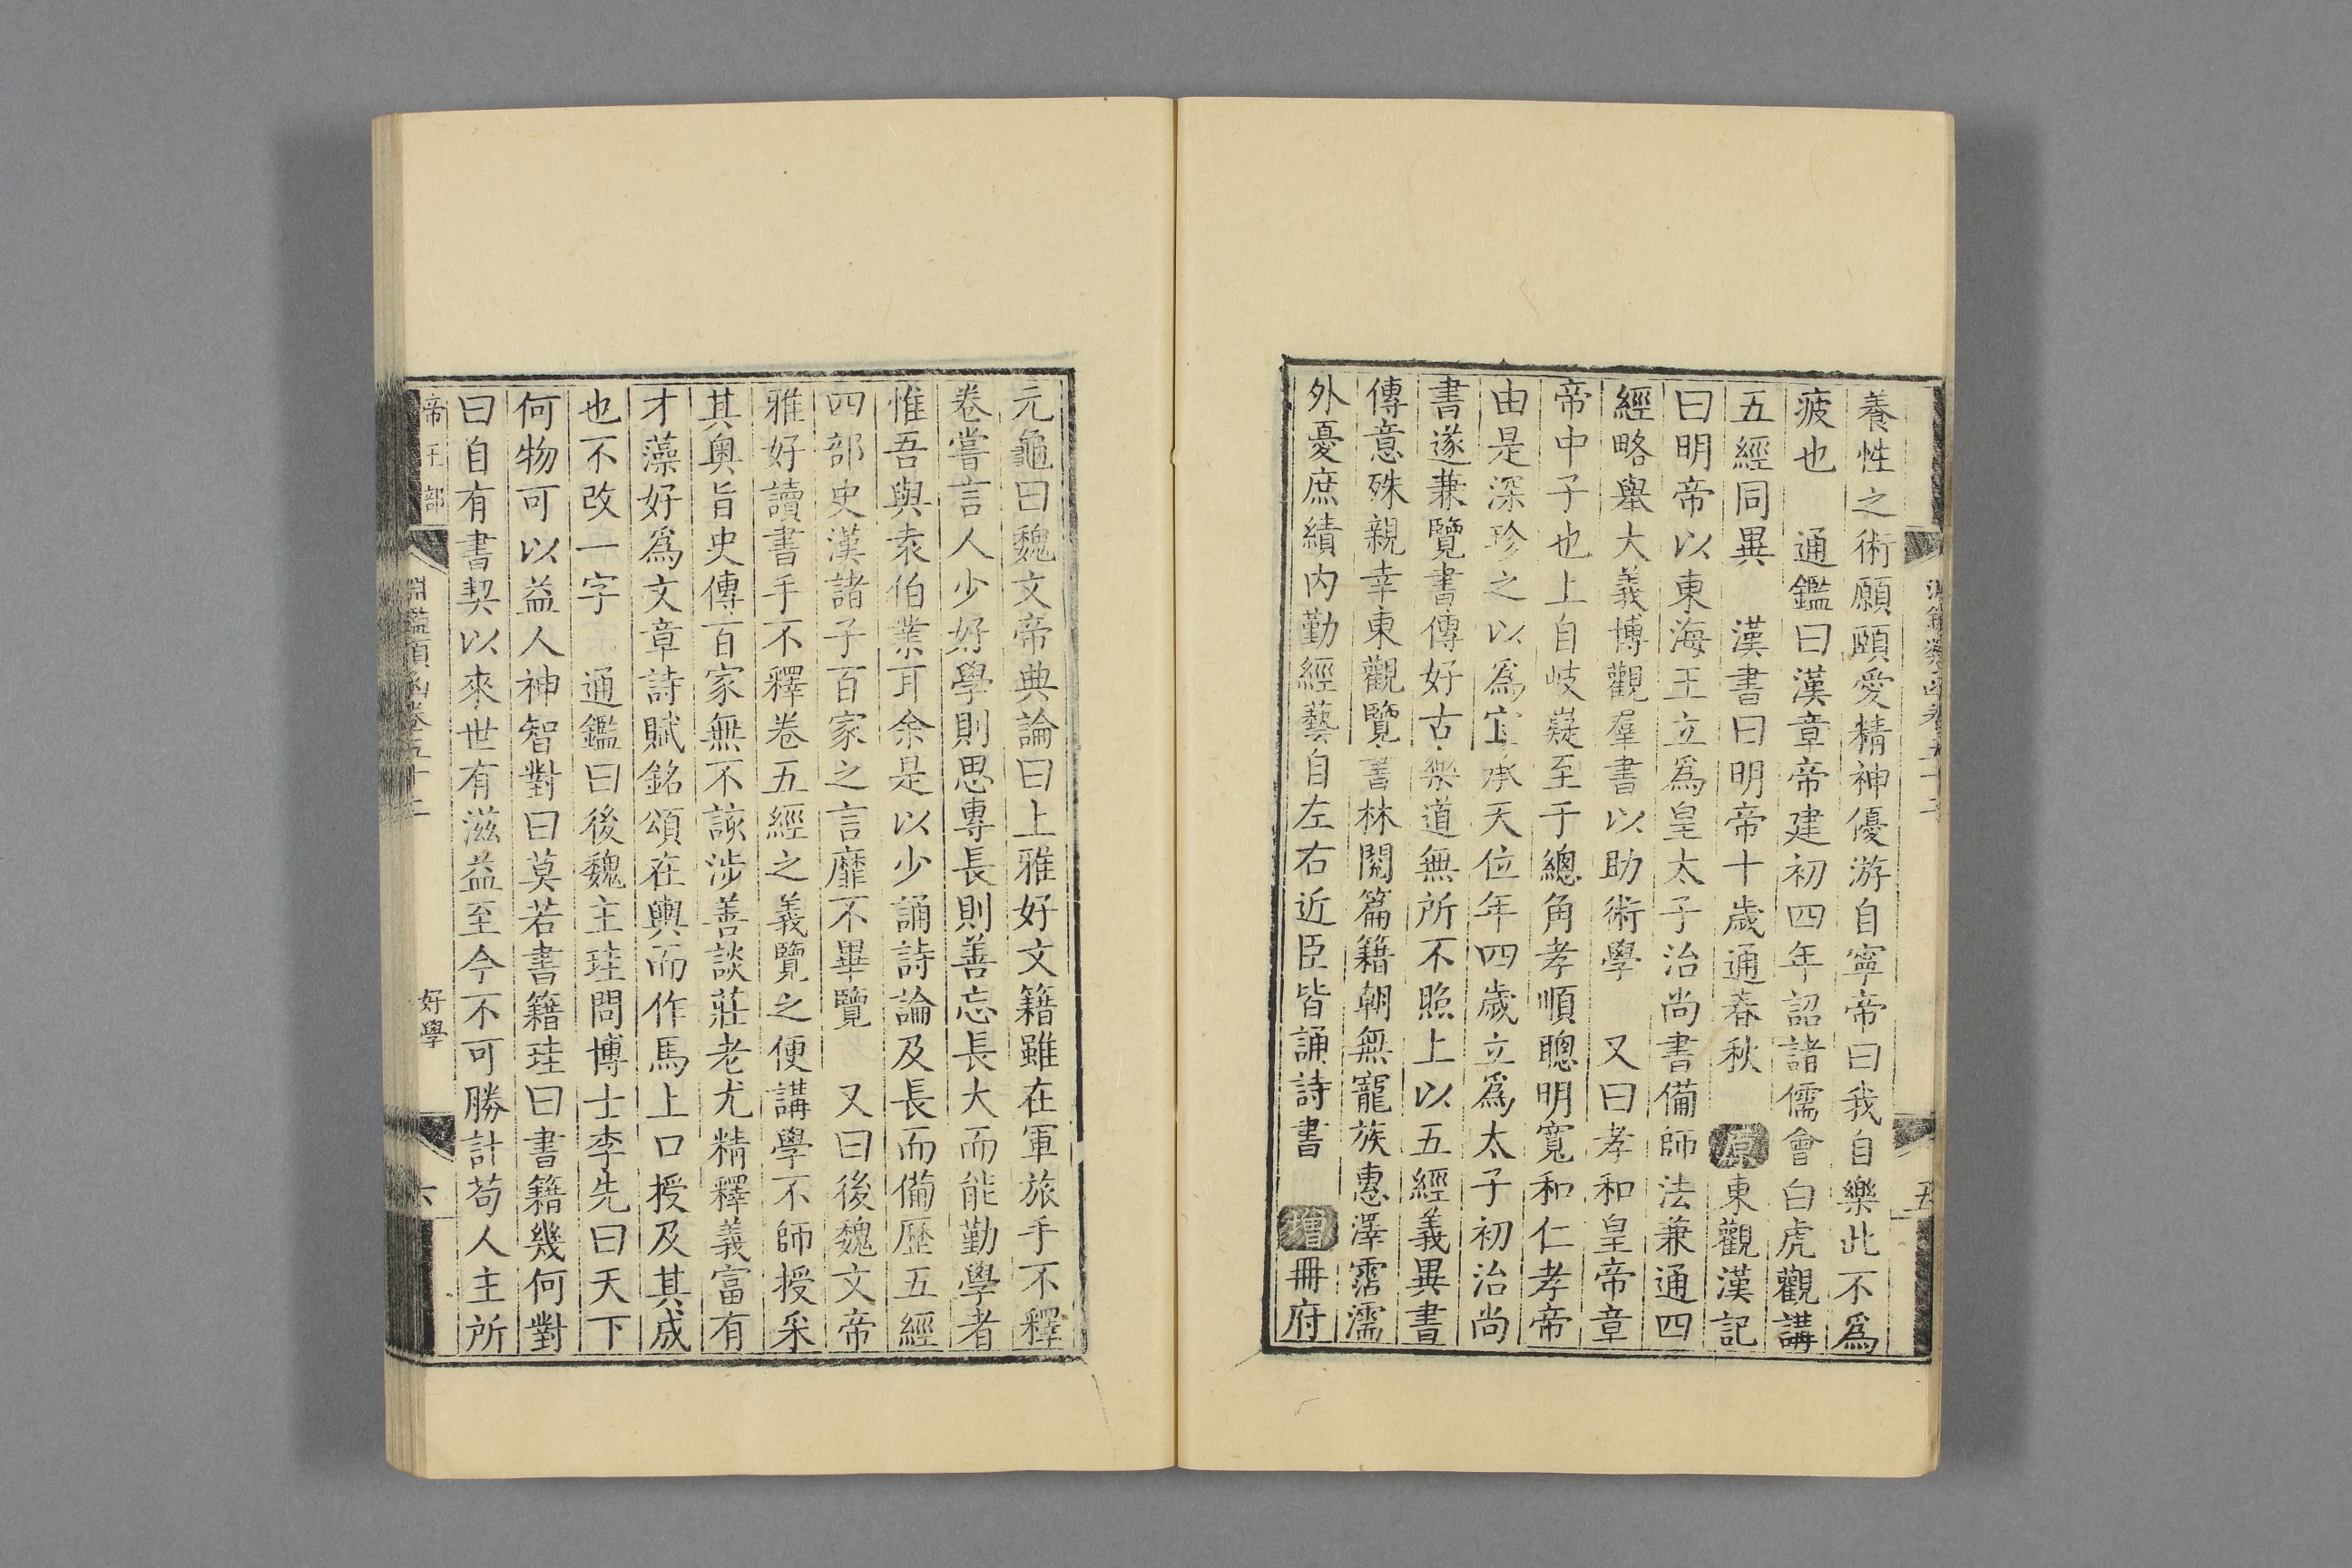 養性之術願頤愛精神優游自寧帝曰我自樂此不爲
疲也　通鑑曰漢章帝建初四年詔諸儒會白虎觀講
五經同異　漢書曰明帝十歲通春秋　原東觀漢記
曰明帝以東海王立爲皇太子治尚書備師法兼通四
經略舉大義博觀羣書以助術學　又曰孝和皇帝章
帝中子也上自岐嶷至于總角孝順聰明寬和仁孝帝
由是深珍之以爲宜承天位年四歲立爲太子初治尚
書遂兼覽書傳好古樂道無所不照上以五經義異書
傳意殊親幸東觀覽書林閱篇籍朝無寵族惠澤霑濡
外憂庶績内勤經藝自左右近臣皆誦詩書　增冊府
元龜曰魏文帝典論曰上雅好文籍雖在軍旅手不釋
卷嘗言人少好學則思專長則善忘長大而能勤學者
惟吾與袁伯業耳余是以少誦詩論及長而備歷五經
四部史漢諸子百家之言靡不畢覽　又曰後魏文帝
雅好讀書手不釋卷五經之義覽之便講學不師授采
其奥旨史傳百家無不該涉善談莊老尤精釋義富有
才藻好爲文章詩賦銘頌在輿而作馬上口授及其成
也不改一字　通鑑曰後魏主珪問博士李先曰天下
何物可以益人神智對曰莫若書籍珪曰書籍幾何對
曰自有書契以來世有滋益至今不可勝計苟人主所
帝王部　淵鑑類函卷五十二　好學　六